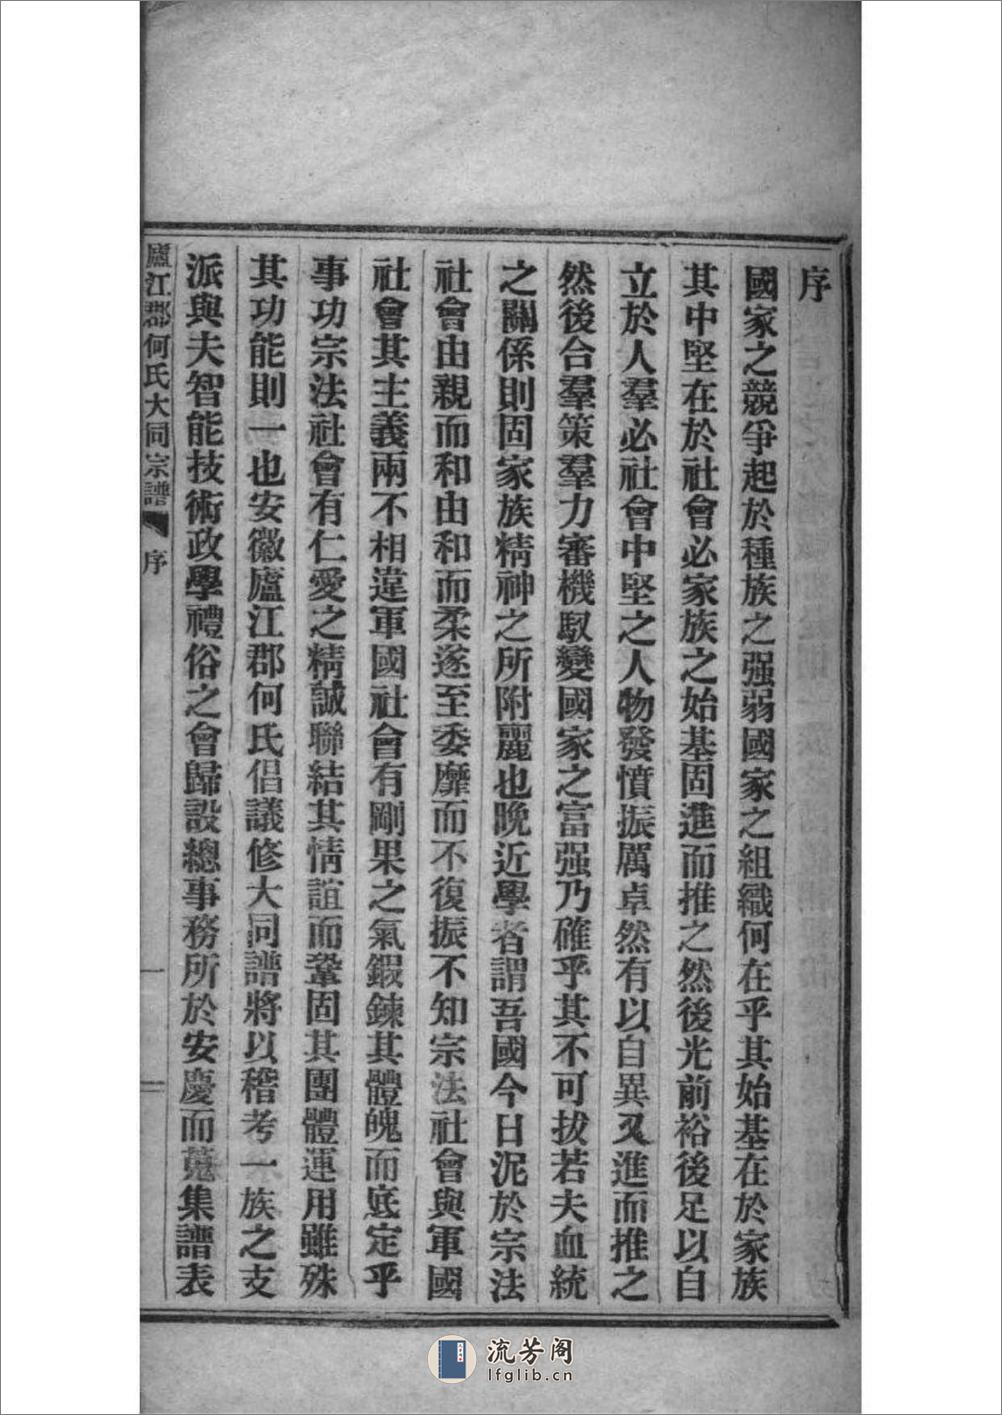 序
國家之競爭起於種族之强弱國家之組織何在乎其始基在於家族
其中堅在於社會必家族之始基固進而推之然後光前裕後足以自
立於人羣必社會中堅之人物發憤振厲卓然有以自異又進而推之
然後合羣策羣力審機馭變國家之富强乃確乎其不可拔若夫血統
之關係則固家族精神之所附麗也晚近學者謂吾國今日泥於宗法
社會由親而和由和而柔遂至委靡而不復振不知宗法社會與軍國
社會其主義兩不相違軍國社會有剛果之氣鍜鍊其體魄而底定乎
事功宗法社會有仁愛之精誠聯結其情誼而鞏固其團體運用雖殊
其功能則一也安徽廬江郡何氏倡議修大同譜將以稽考一族之支
派與夫智能技術政學禮俗之會歸設總事務所於安慶而蒐集譜表
廬江郡何氏大同宗譜 序 一 一
流芳阁
lfglib.cn